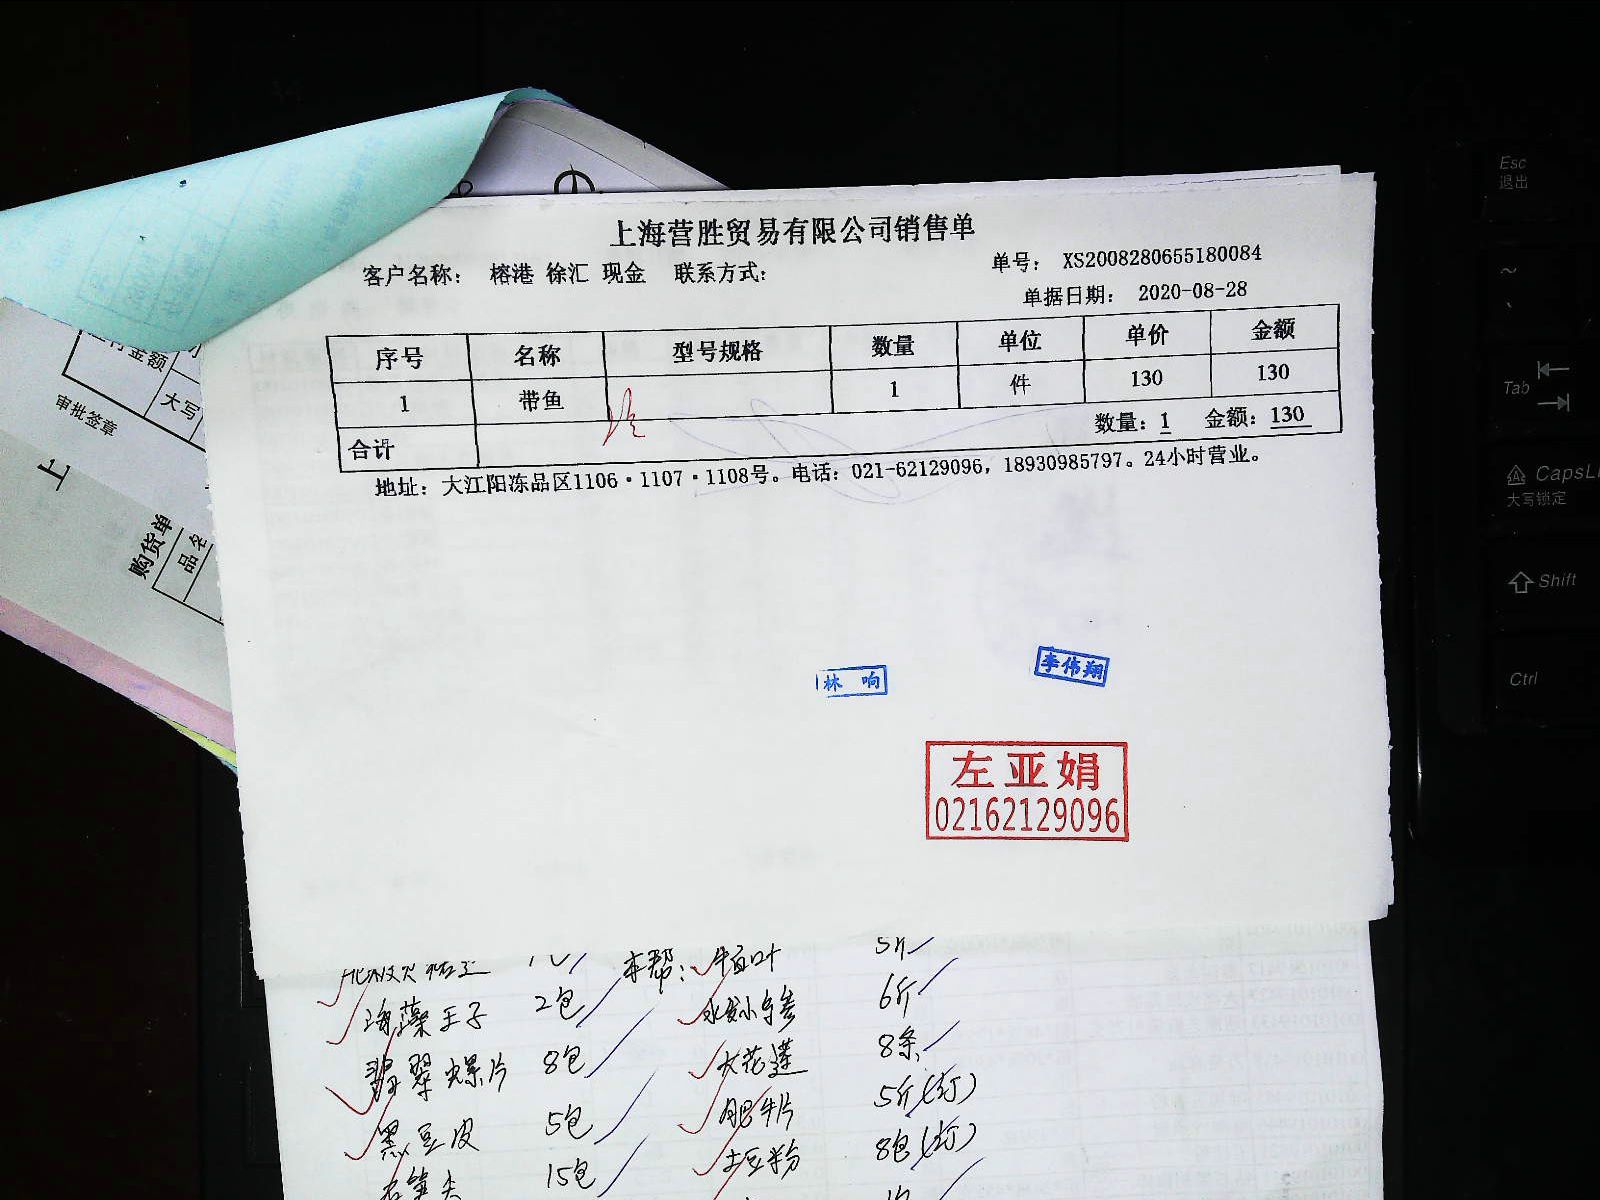 上海营胜贸易有限公司销售单
客户名称： 榕港 徐汇 现金 联系方式：
单号： XS2008280655180084
单据日期： 2020-08-28
序号 名称 型号规格 数量 单位 单价 金额
1 带鱼 1 件 130 130
合计 数量：1 金额：130
地址：大江阳冻品区1106·1107·1108号。电话：021-62129096，18930985797。24小时营业。
林 响
李伟翔
左亚娟
02162129096
金额
大写
审批签章
上
购货单
品名
本帮： 牛百叶 5斤
海藻王子 2包 水发小乌参 6斤
翡翠螺片 8包 大花莲 8条
黑豆皮 5包 肥牛片 5斤
15包 土豆粉 8包
Esc
退出
~
Tab
CapsL
大写锁定
Shift
Ctrl